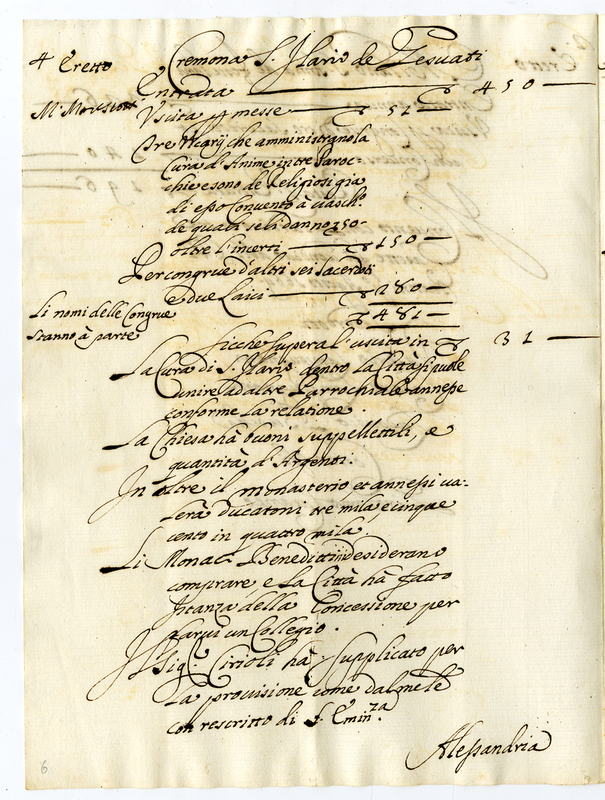 4 Eretto Cremona S. Ilario de Gesuati
Entrata ▽ 450
Mr. Uscita per messe ▽ 51
Tre Vicarij che amministrano la
Cura d'Anime in tre Paroc-
chie e sono de Religiosi gia
di esso Convento à ciasch.o
de quali se li danno 50
oltre l'incerti ▽ 150
Per congrue d'altri sei Sacerdoti
e due Laici ▽ 280
Li nomi delle Congrue ▽ 481
stanno à parte
Sicche supera l'uscita in ▽ 31
La Cura di S. Ilario dentro la Città si puole
unire ad altre Parrochiale annesse
conforme la relatione.
La Chiesa hà buoni suppellettili, e
quantità d'Argenti.
In oltre il monasterio, et annessi va-
lerà ducatoni tre mila, e cinque
cento in quattro mila
Li Monaci Benedittini desiderano
comprare, e la Città hà fatto
Istanza della Concessione per
farvi un Collegio.
Il Sig.r Cirioli hà supplicato per
la provisione come dal
con rescritto di S. Emin.za
Alessandria
6